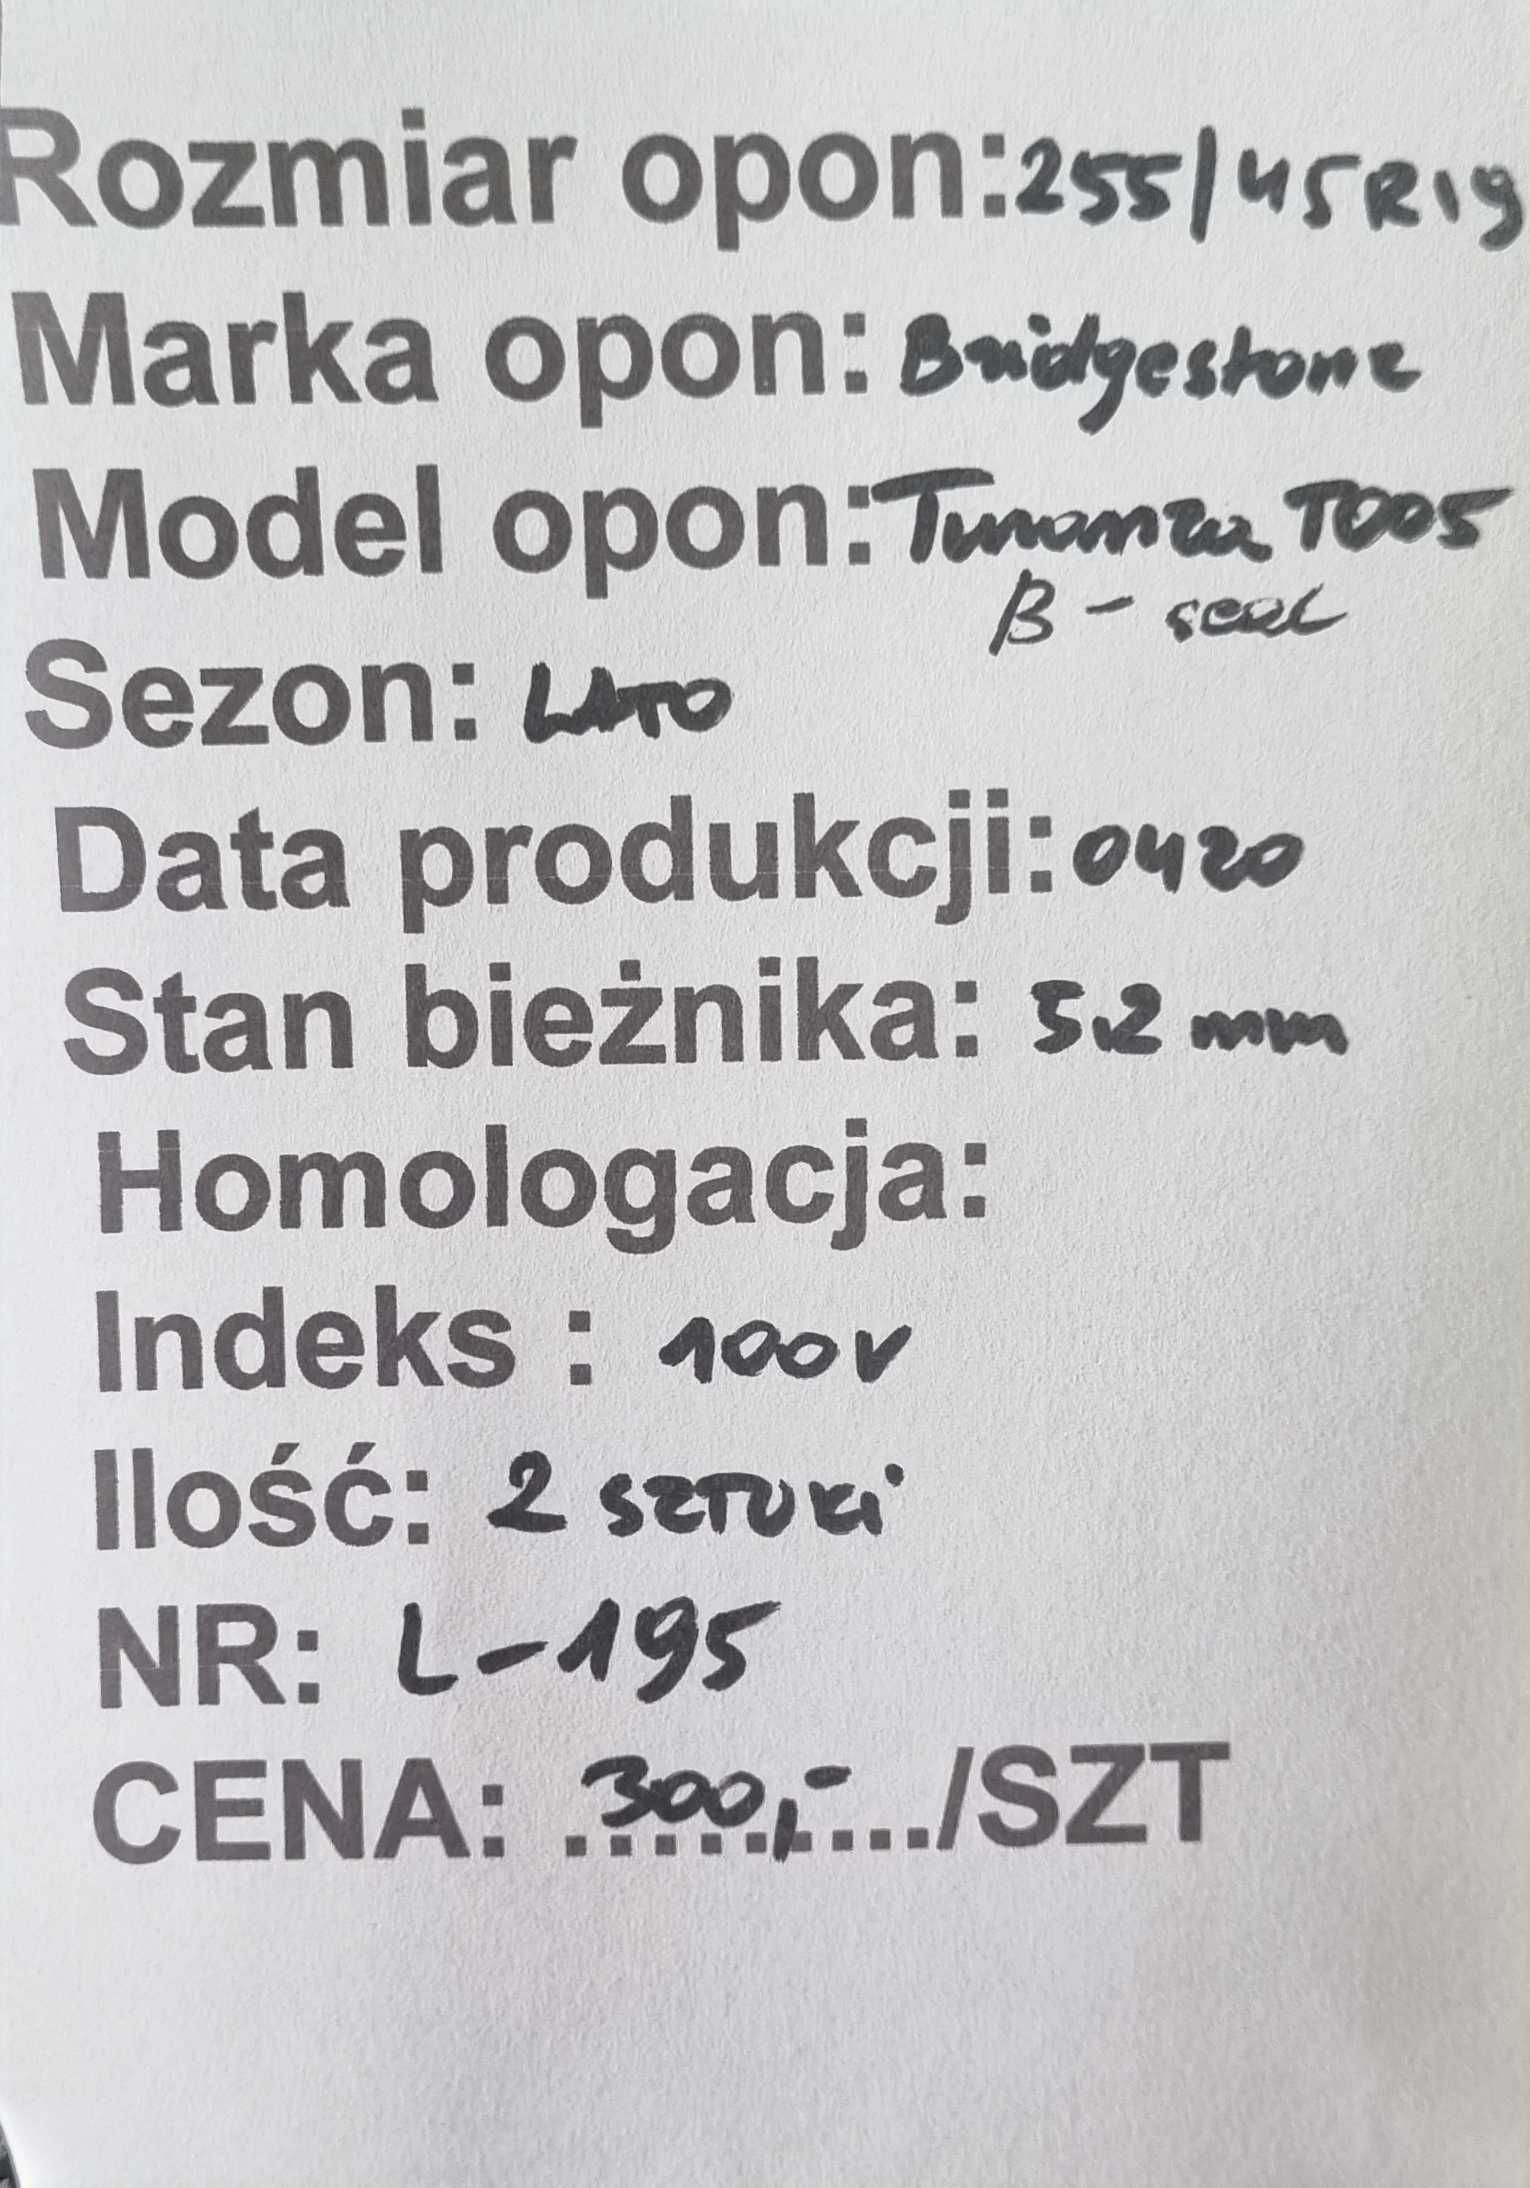 Rozmiar opon: 255/45R19
Marka opon: Bridgestone
Model opon: Turanza T005
B - seal
Sezon: LATO
Data produkcji: 0420
Stan bieżnika: 5.2 mm
Homologacja:
Indeks : 100V
Ilość: 2 SZTUKi
NR: L-195
CENA: .300,-.../SZT